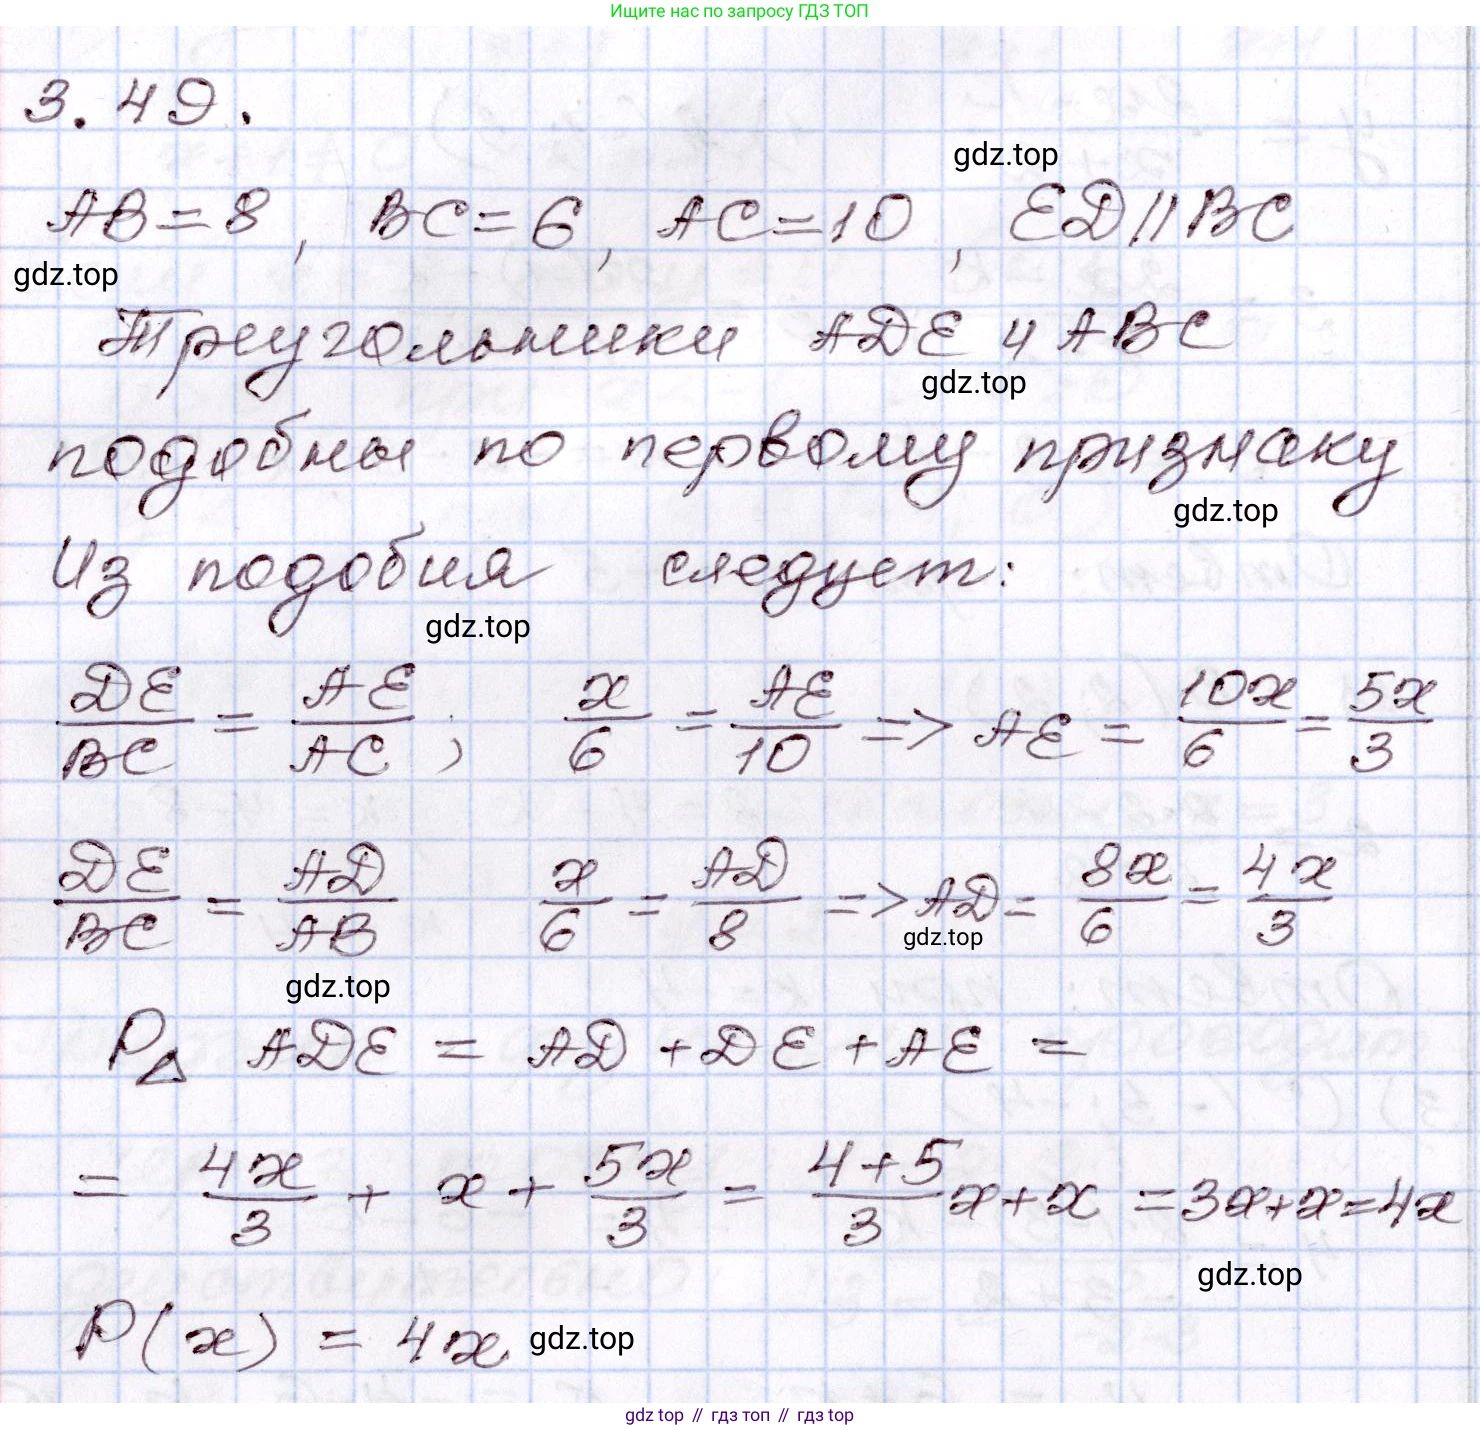 Ищите нас по запросу ГДЗ ТОП
3.49.
gdz.top
AB=8, BC=6, AC=10, ED||BC
gdz.top
Треугольники ADE и ABC
gdz.top
подобны по первому признаку
gdz.top
Из подобия следует:
gdz.top
DE/BC = AE/AC; x/6 = AE/10 => AE = 10x/6 = 5x/3
DE/BC = AD/AB x/6 = AD/8 => AD = 8x/6 = 4x/3
gdz.top
gdz.top
P△ ADE = AD + DE + AE =
= 4x/3 + x + 5x/3 = 4+5/3 x + x = 3x+x=4x
gdz.top
P(x) = 4x
gdz.top
gdz top // гдз топ // гдз top